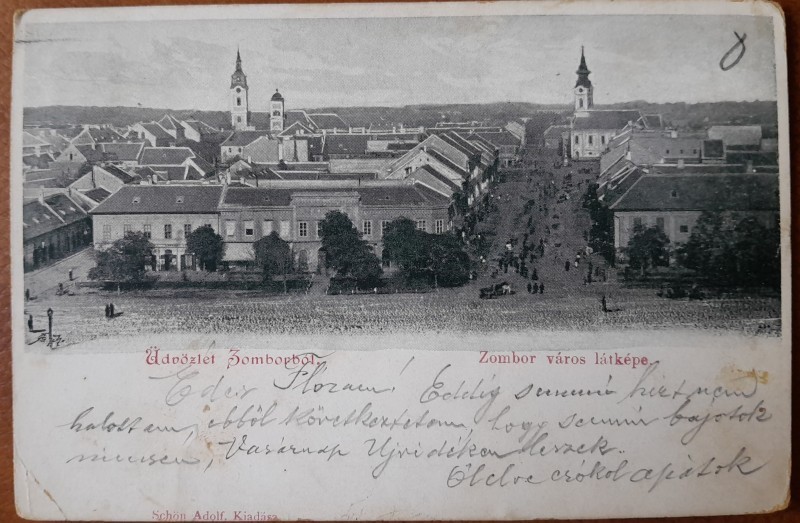 Üdvözlet Zomborból.
Zombor város látképe.
Édes Flórám! Eddig semmi hirt nem
halottam, ebből következtetem, hogy semmi bajotok
nincsen, Vasárnap Ujvidéken leszek.
Ölelve csókol apátok
Schön Adolf, Kiadása